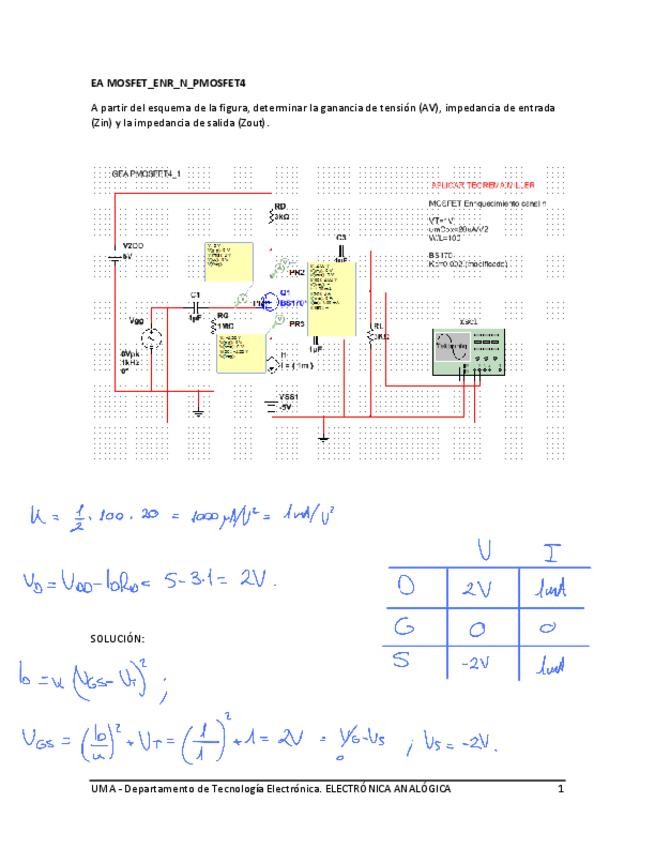 EA MOSFET_ENR_N_PMOSFET4
A partir del esquema de la figura, determinar la ganancia de tensión (AV), impedancia de entrada
(Zin) y la impedancia de salida (Zout).
GEA PMOSFET4_1
APLICAR TEOREMA MILLER
MOSFET Enriquecimiento canal n
VT=1V
umCox=20uA/V2
W/L=100
BS170
RD
3kΩ
V2DD
5V
C3
PR2
Q1
BS170*
C1
1µF
RG
1MΩ
PR3
Vgg
1kHz
0°
1µF
RL
I1
I = {1m}
VSS1
-5V
XSC1
K = 1/2 · 100 · 20 = 1000 µA/V² = 1mA/V²
V I
V_D = V_DD - I_D R_D = 5 - 3·1 = 2V.
D 2V 1mA
G 0 0
S -2V 1mA
SOLUCIÓN:
I_D = K (V_GS - V_T)² ;
V_GS = (I_D/K)² + V_T = (1/1)² + 1 = 2V = V_G - V_S ; V_S = -2V.
0
UMA - Departamento de Tecnología Electrónica. ELECTRÓNICA ANALÓGICA 1